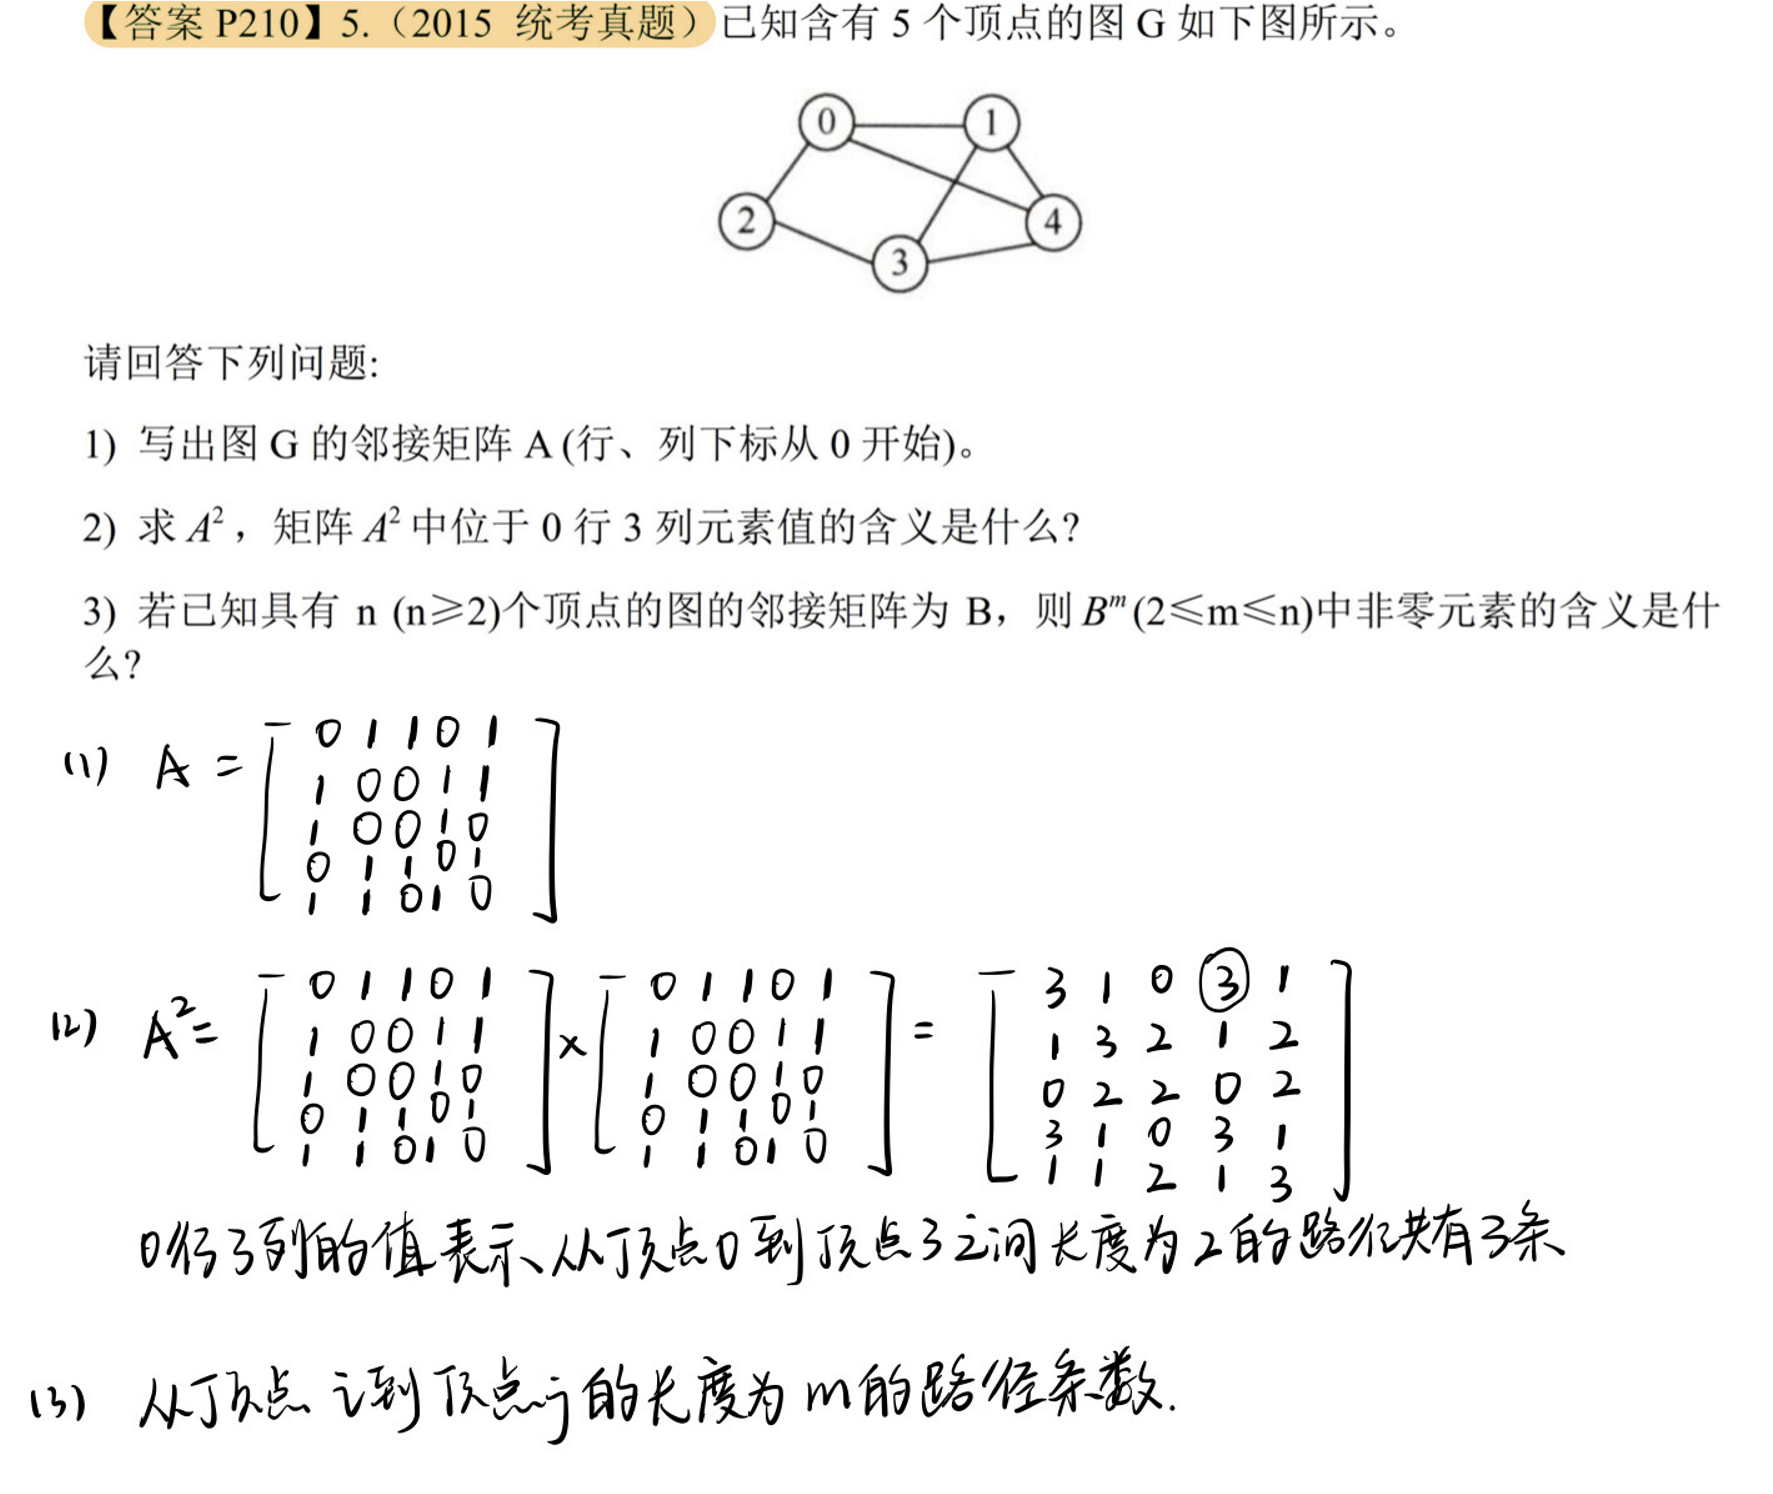 【答案 P210】5.（2015 统考真题）已知含有 5 个顶点的图 G 如下图所示。
0 1
2 4
3
请回答下列问题:
1) 写出图 G 的邻接矩阵 A (行、列下标从 0 开始)。
2) 求 A²，矩阵 A² 中位于 0 行 3 列元素值的含义是什么?
3) 若已知具有 n (n≥2)个顶点的图的邻接矩阵为 B，则 Bᵐ (2≤m≤n)中非零元素的含义是什
么?
(1) A = [ 0 1 1 0 1
1 0 0 1 1
1 0 0 1 0
0 1 1 0 1
1 1 0 1 0 ]
(2) A² = [ 0 1 1 0 1 ] × [ 0 1 1 0 1 ] = [ 3 1 0 3 1 ]
1 0 0 1 1 1 0 0 1 1 1 3 2 1 2
1 0 0 1 0 1 0 0 1 0 0 2 2 0 2
0 1 1 0 1 0 1 1 0 1 3 1 0 3 1
1 1 0 1 0 1 1 0 1 0 1 1 2 1 3
0行3列的值表示从顶点0到顶点3之间长度为2的路径共有3条
(3) 从顶点i到顶点j的长度为m的路径条数.